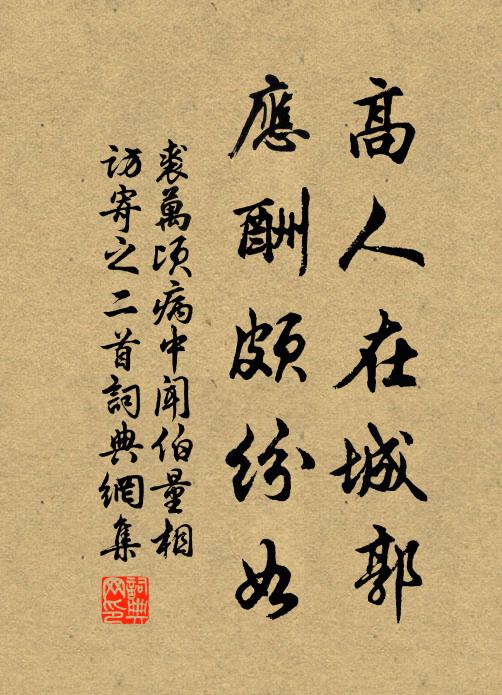 高人在城郭
應酬頗紛如
裘萬頃病中聞伯量相
訪寄之二首詞典網集
詞典网印